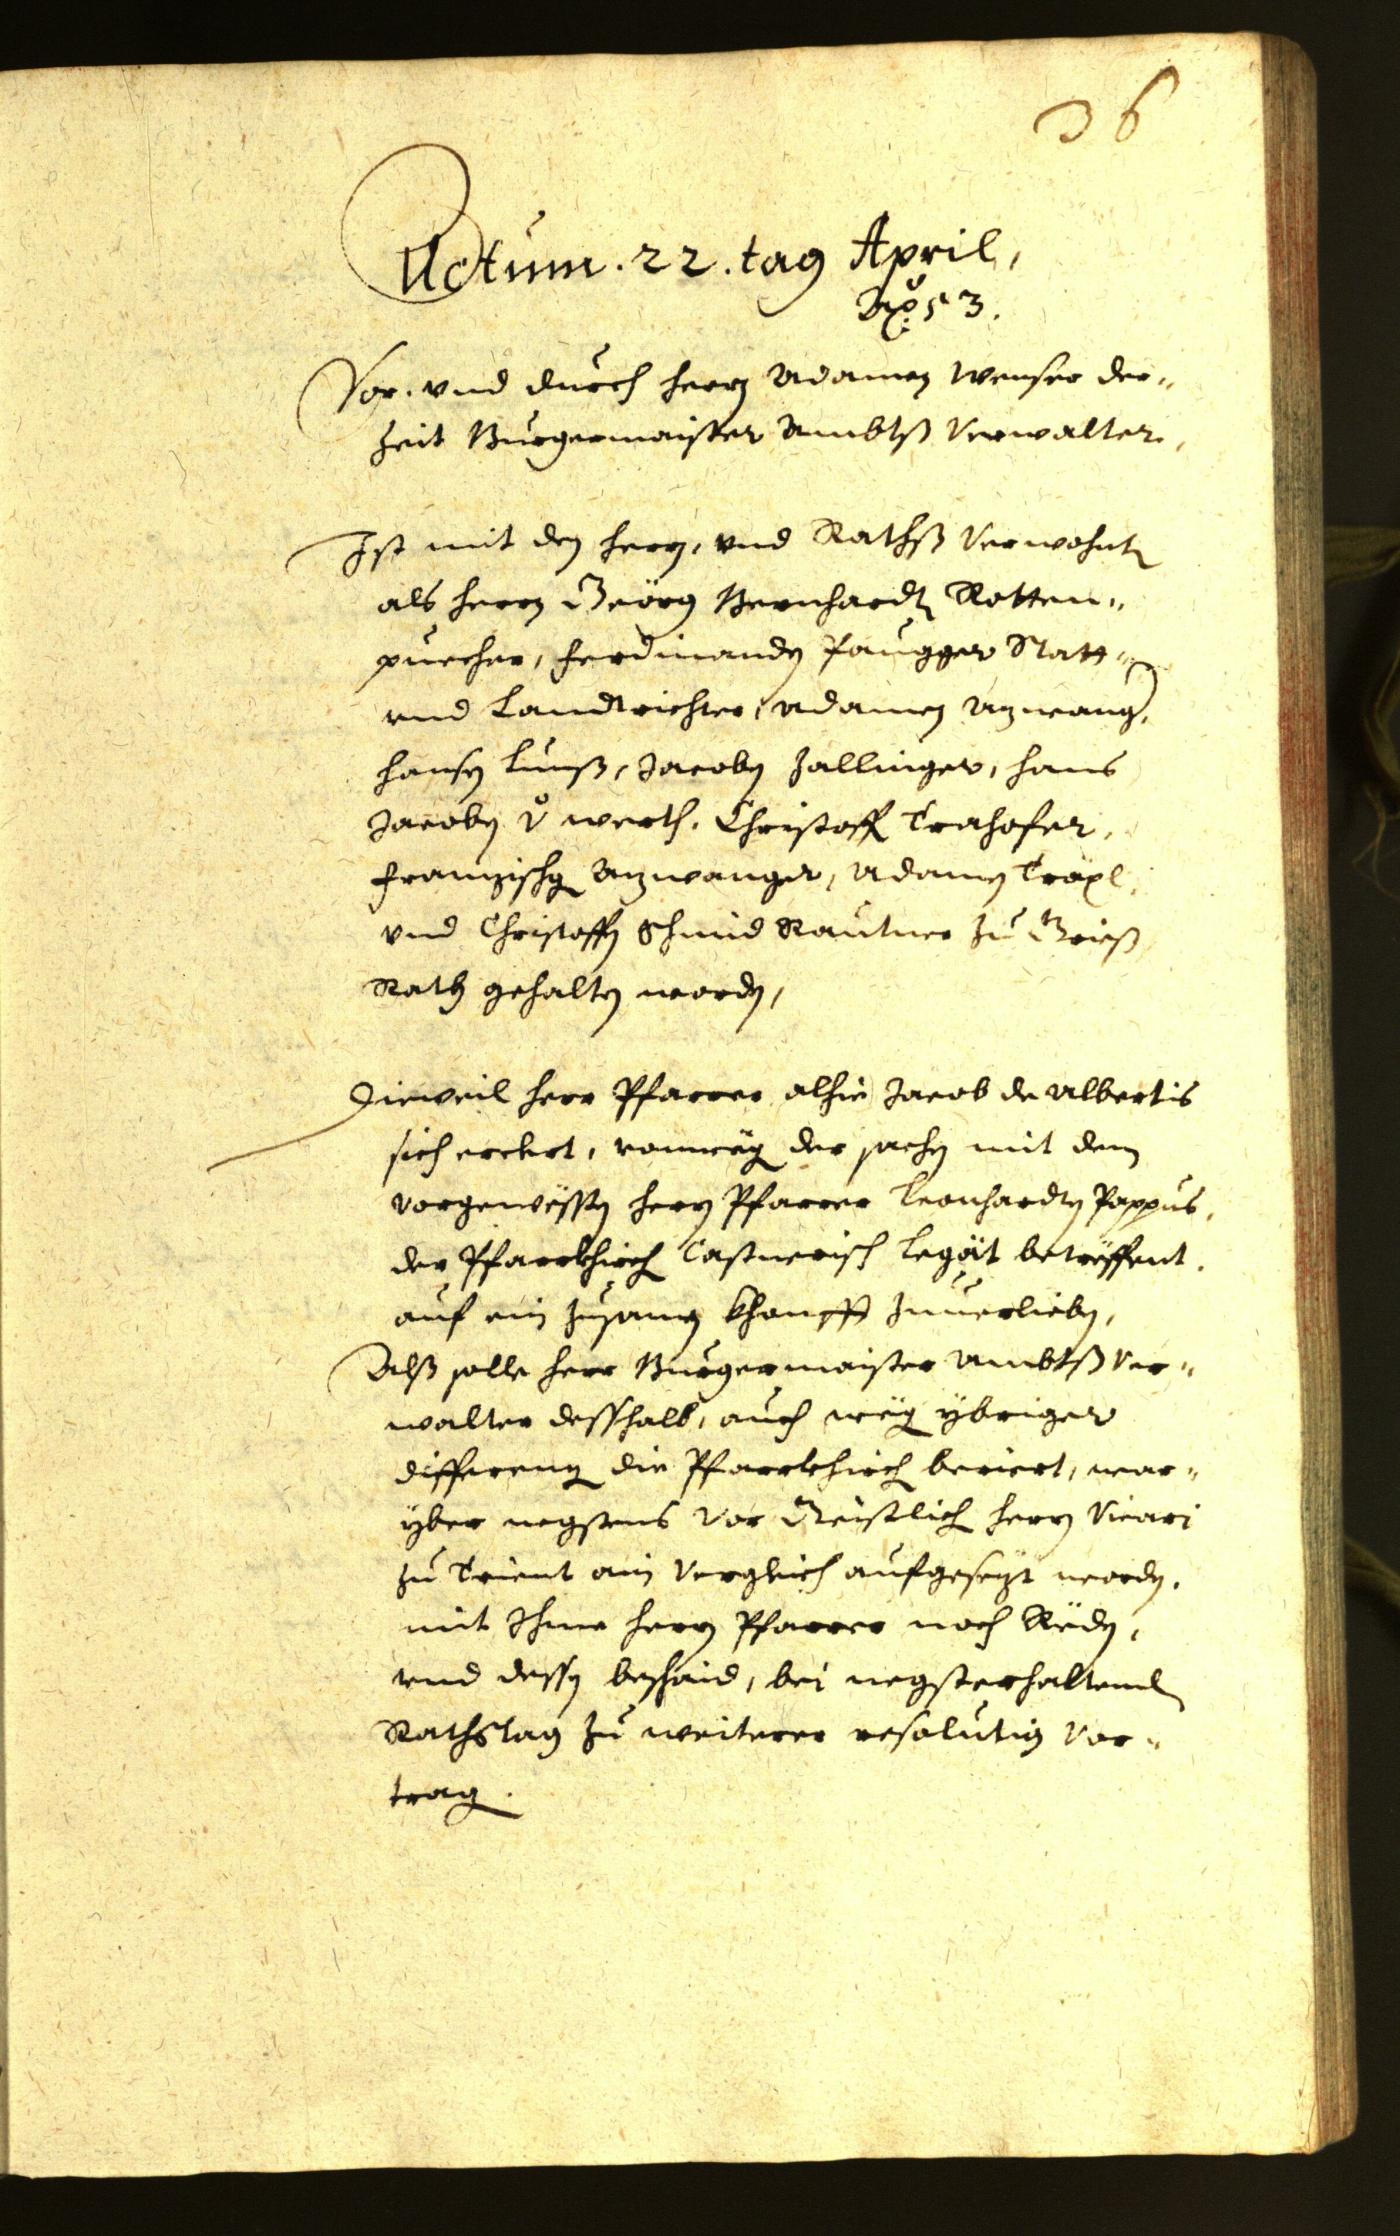 36
Actum. 22. tag April,
Ao 53.
Vor. vnd durch herrn Adamen Wenser der„
zeit Burgermaister Ambtß Verwalter,
Ist mit den herrn, vnd Rathß Verwohnt
als herrn Geörg Bernhardt Rotten„
puecher, Ferdinanden Statt„
vnd Landtrichter, Adamen Azwang,
Hansen Lunß, Jacoben Zallinger, Hans
Jacoben v werth. Christoff Trahofer,
Franzischg Azwanger, Adamen Träxl,
vnd Christoffen Schmid Rautner zu Grieß
Rath gehalten worden,
Dieweil herr Pfarrer alhie Jacob de Albertis
sich erclert, vonweg der sachen mit dem
vorgewesten herrn Pfarrer Leonhardten Pappus,
der Pfarrkhirch Castnerisch Legät betreffent.
auf ein zusamen khonfft zuuerlieben,
Alß solle herr Burgermaister Ambtß Ver„
walter desshalb, auch weg ybriger
differenz die Pfarrkhirch beriert, war„
yber negstens vor Geistlich herrn Vicari
zu Trient ain Vergleich aufgesezt worden.
mit Ihme herrn Pfarrer noch Reden,
vnd dessen beschaid, bei negsterhaltend
Rathstag zu weiterer resolution vor„
trag.